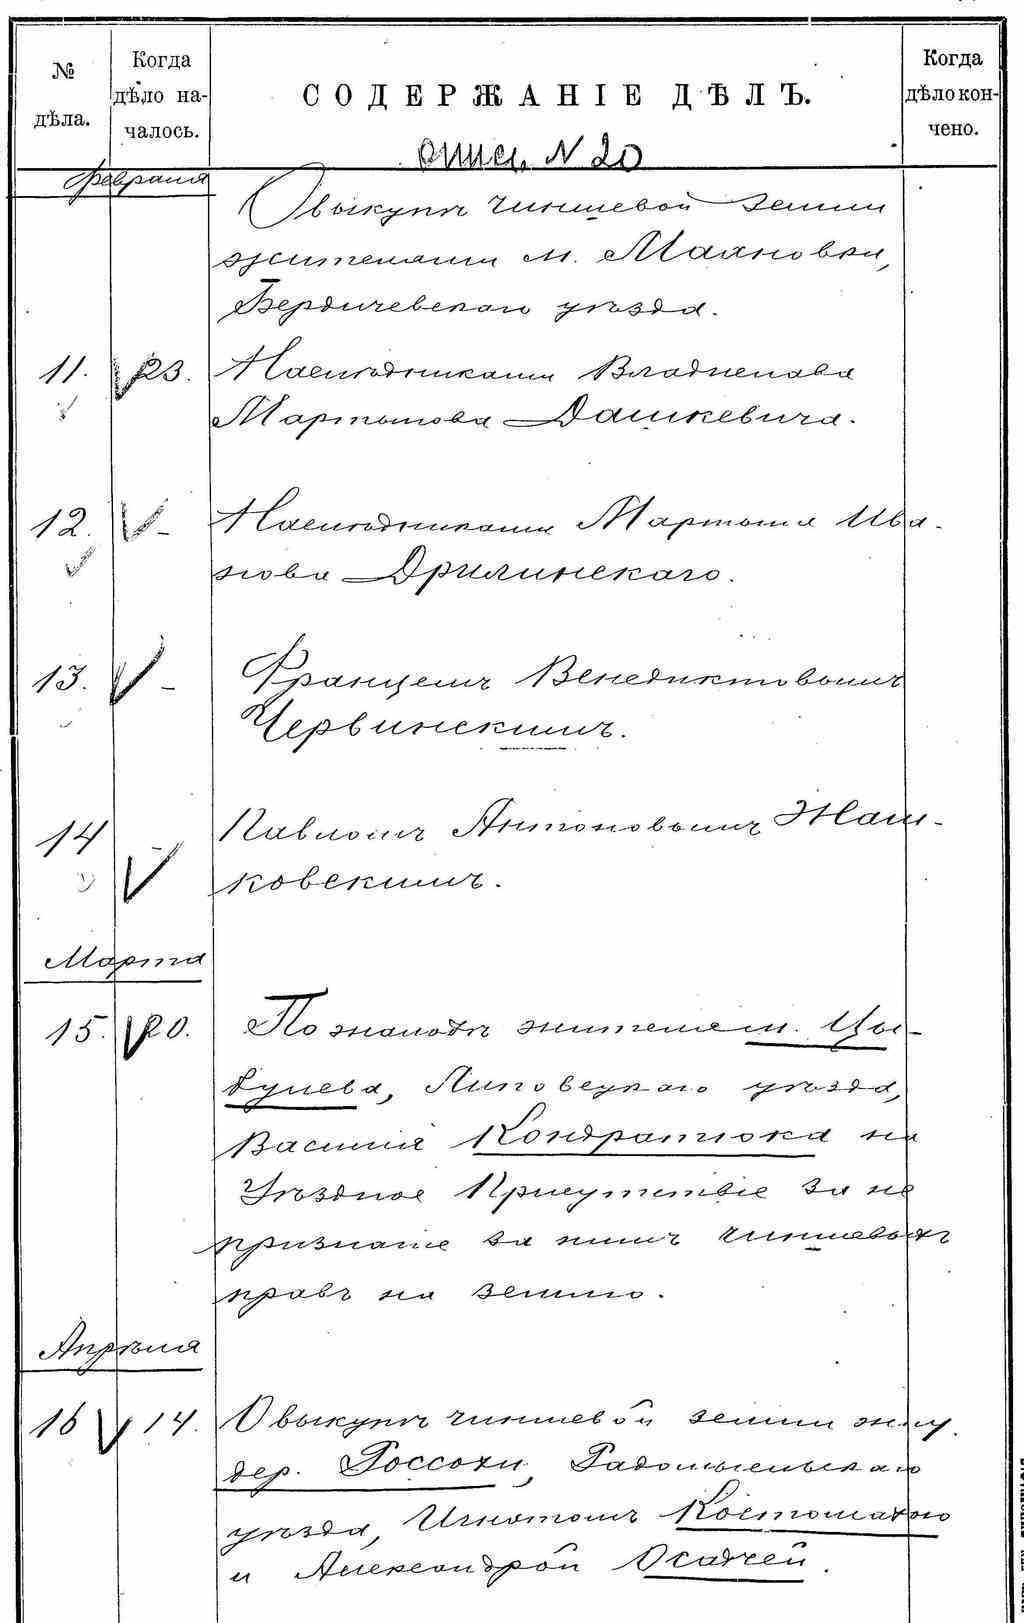 № дѣла.
Когда дѣло началось.
СОДЕРЖАНІЕ ДѢЛЪ.
Когда дѣло кончено.
опись N 20
Февраля
О выкупѣ чиншевой земли
жителями м. Махновки,
Бердичевскаго уѣзда.
11. 23. Наслѣдниками Владислава
Мартынова Дашкевича.
12. - Наслѣдниками Мартына Ива-
нова Дрилинскаго.
13. - Францемъ Венедиктовымъ
Червинскимъ.
14 - Павломъ Антоновымъ Жаш-
ковскимъ.
Марта
15. 20. По жалобѣ жителя м. Цы-
булева, Липовецкаго уѣзда,
Василія Кондратюка на
Уѣздное Присутствіе за не
признаніе за нимъ чиншевыхъ
правъ на землю.
Апрѣля
16 14. О выкупѣ чиншевой земли жил.
дер. Россохи, Радомысльскаго
уѣзда, Игнатомъ Костюшкою
и Александрой Осадчей.